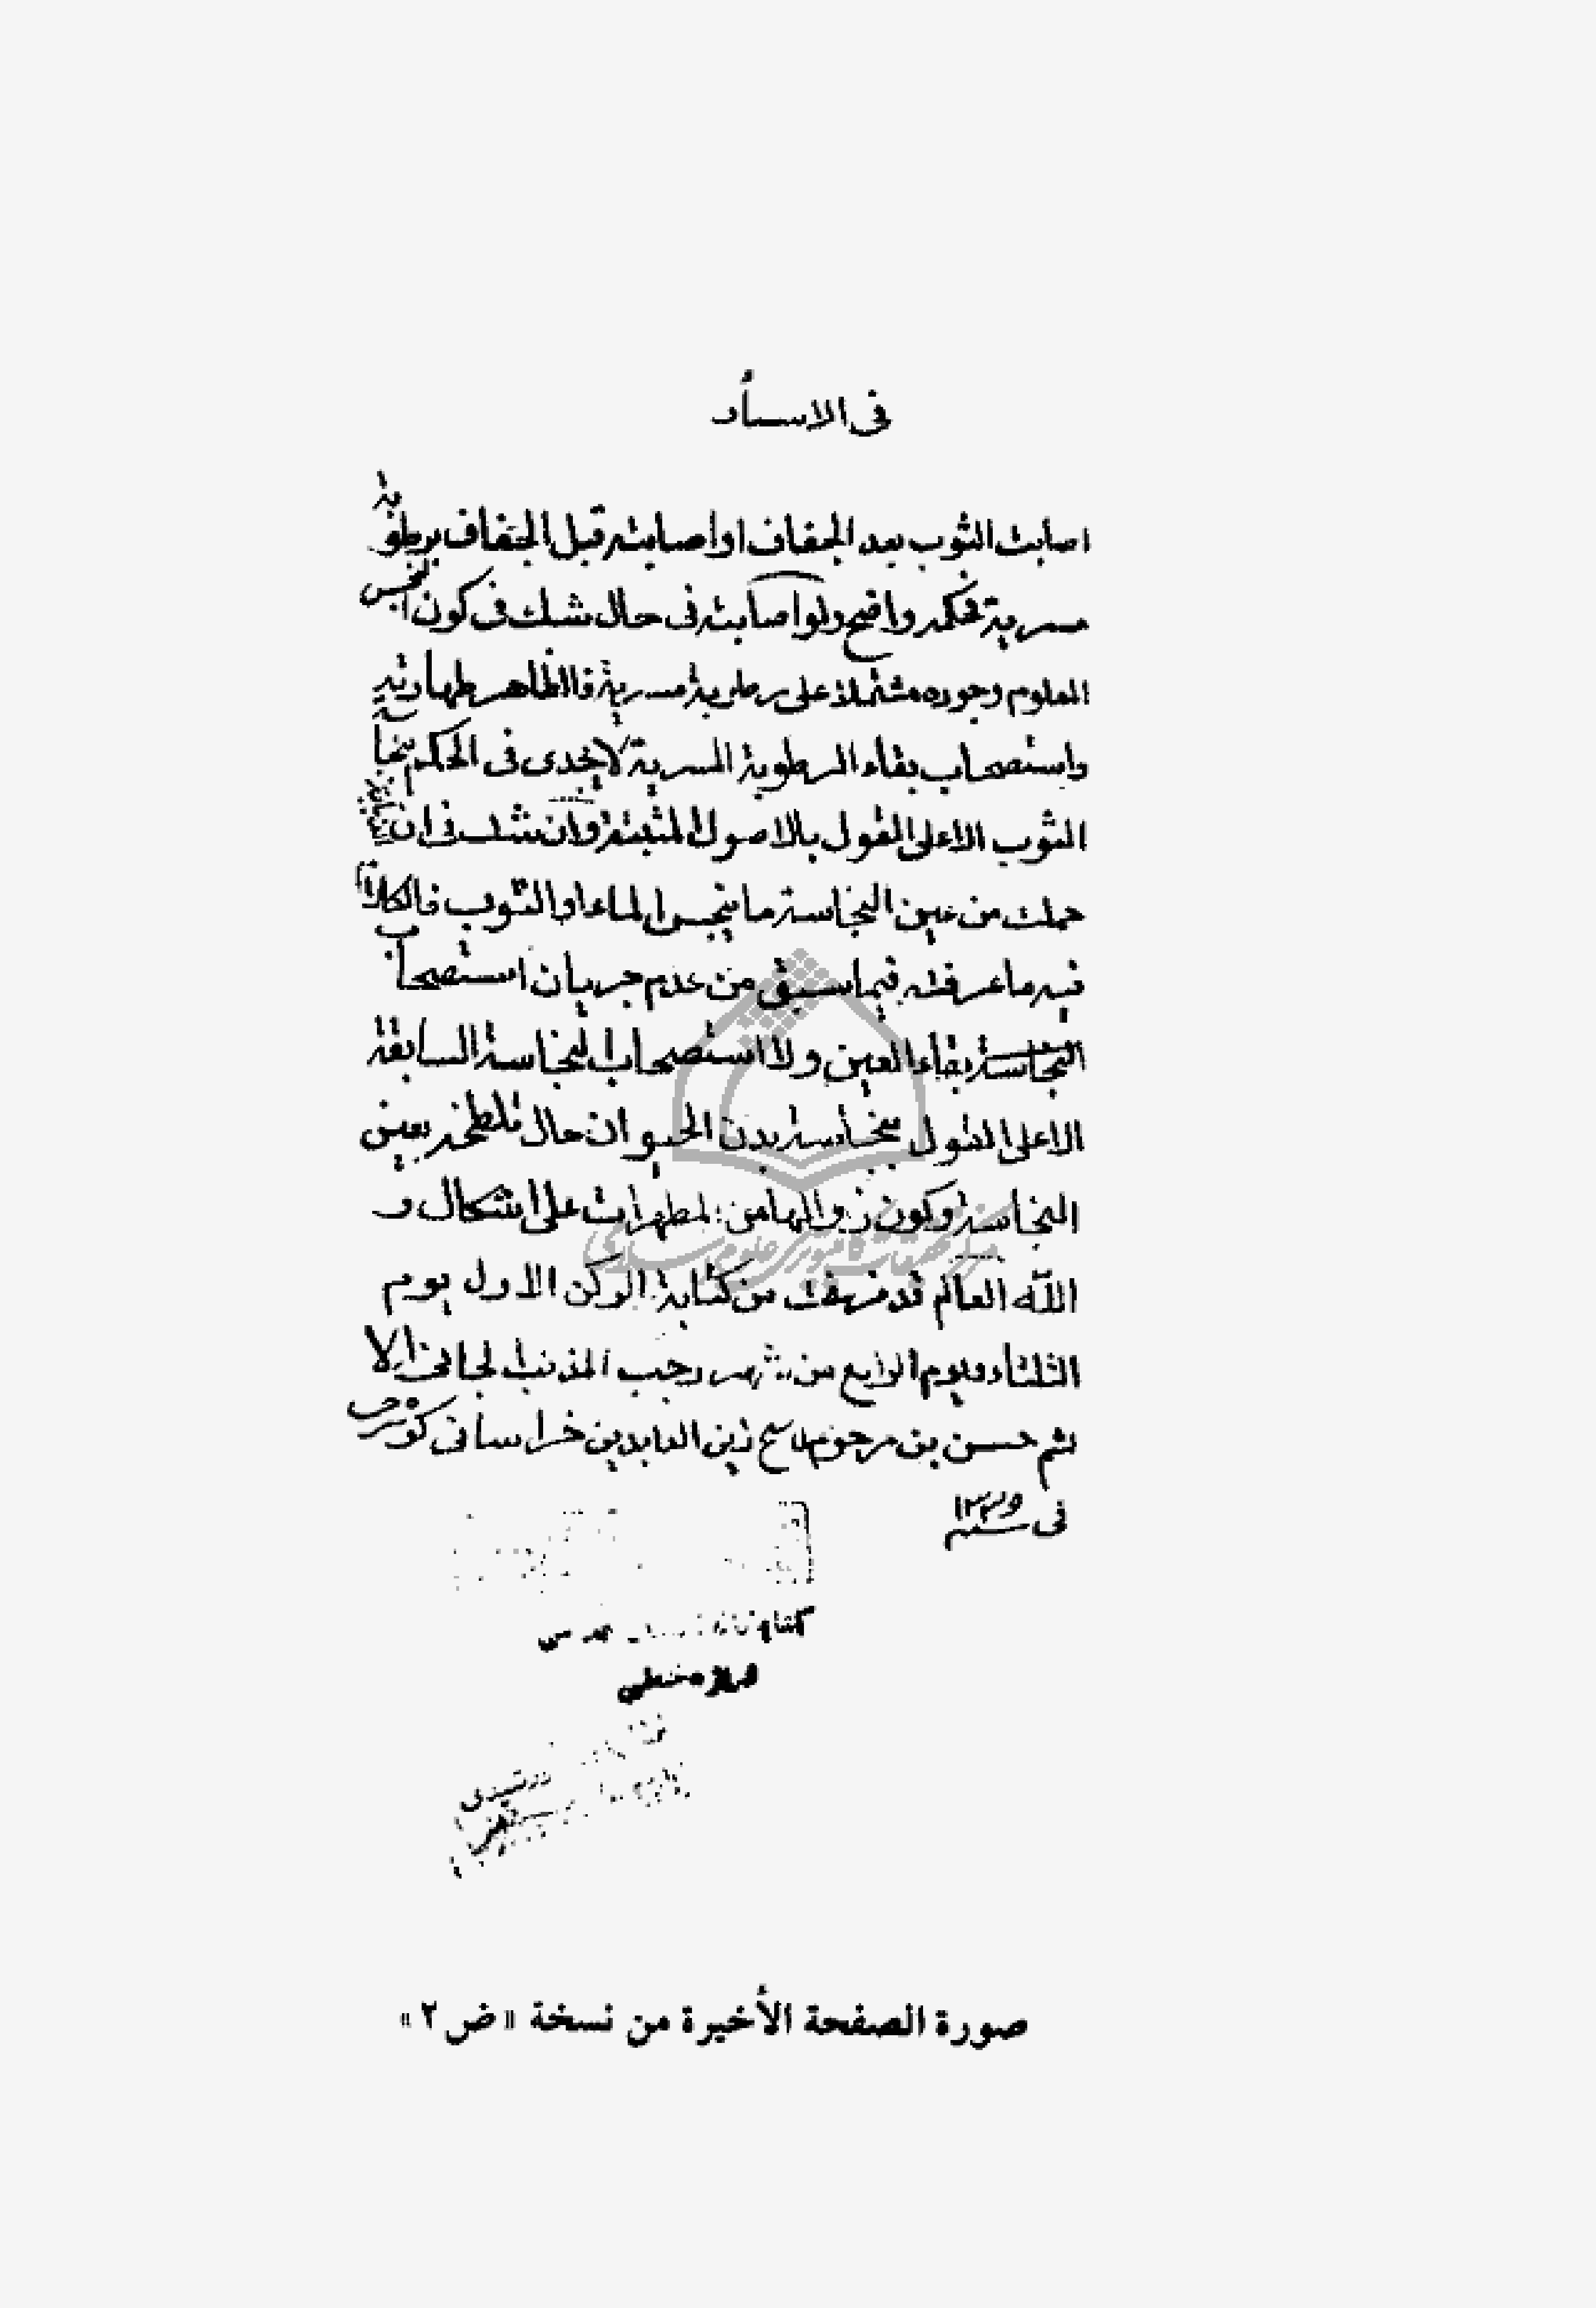 فى الاسأر
اصابت الثوب بعد الجفاف او اصابته قبل الجفاف برطوبة
مسرية فحكمه واضح ولو اصابته فى حال شك فى كون النجس
المعلوم وجوده مشتملا على رطوبة مسرية فالظاهر طهارته
واستصحاب بقاء الرطوبة المسرية لا يجدى فى الحكم بنجاسة
الثوب الا على القول بالاصول المثبتة وان شك فى ان الذبابة
حملت من عين النجاسة ما ينجس الماء او الثوب فالكلام
فيه ما عرفته فيما سبق من عدم جريان استصحاب
النجاسة بقاء العين ولا استصحاب النجاسة السابقة
الا على القول بنجاسة بدن الحيوان حال تلطخه بعين
النجاسة وكون زوالها من المطهرات على اشكال و
الله العالم قد فرغت من كتابة الركن الاول يوم
الثلثاء ويوم الرابع من شهر رجب المذنب الجانى الا
ثم حسن بن مرحوم زين العابدين خراسانى
فى سنه
خطى
صورة الصفحة الأخيرة من نسخة «ض ٢»